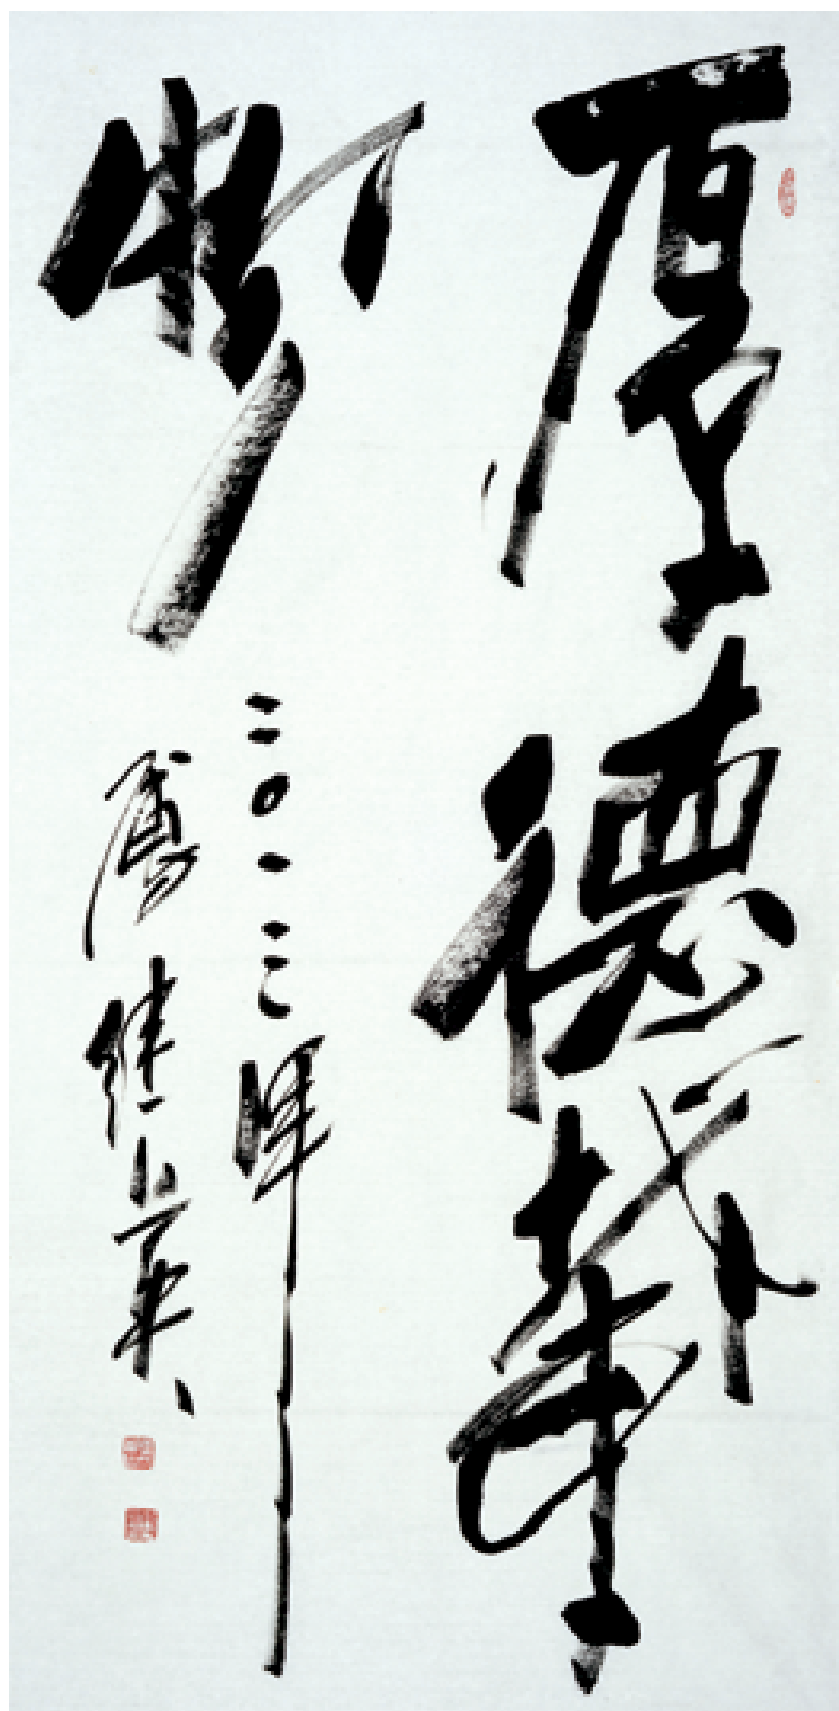 厚德載
物
二〇一三年